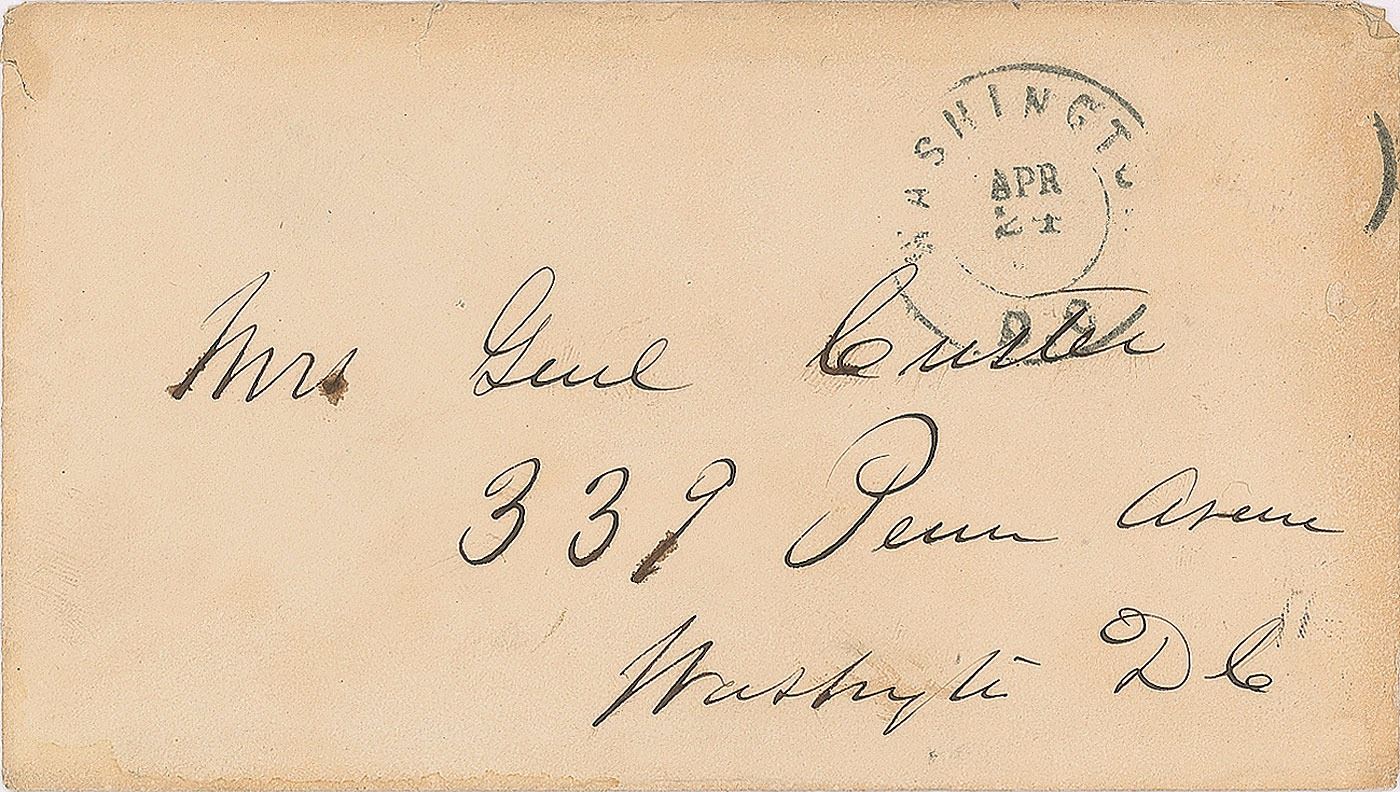 WASHINGTO
APR
24
D.C.
Mrs Genl Custer
339 Penn Avenu
Washingtn D C